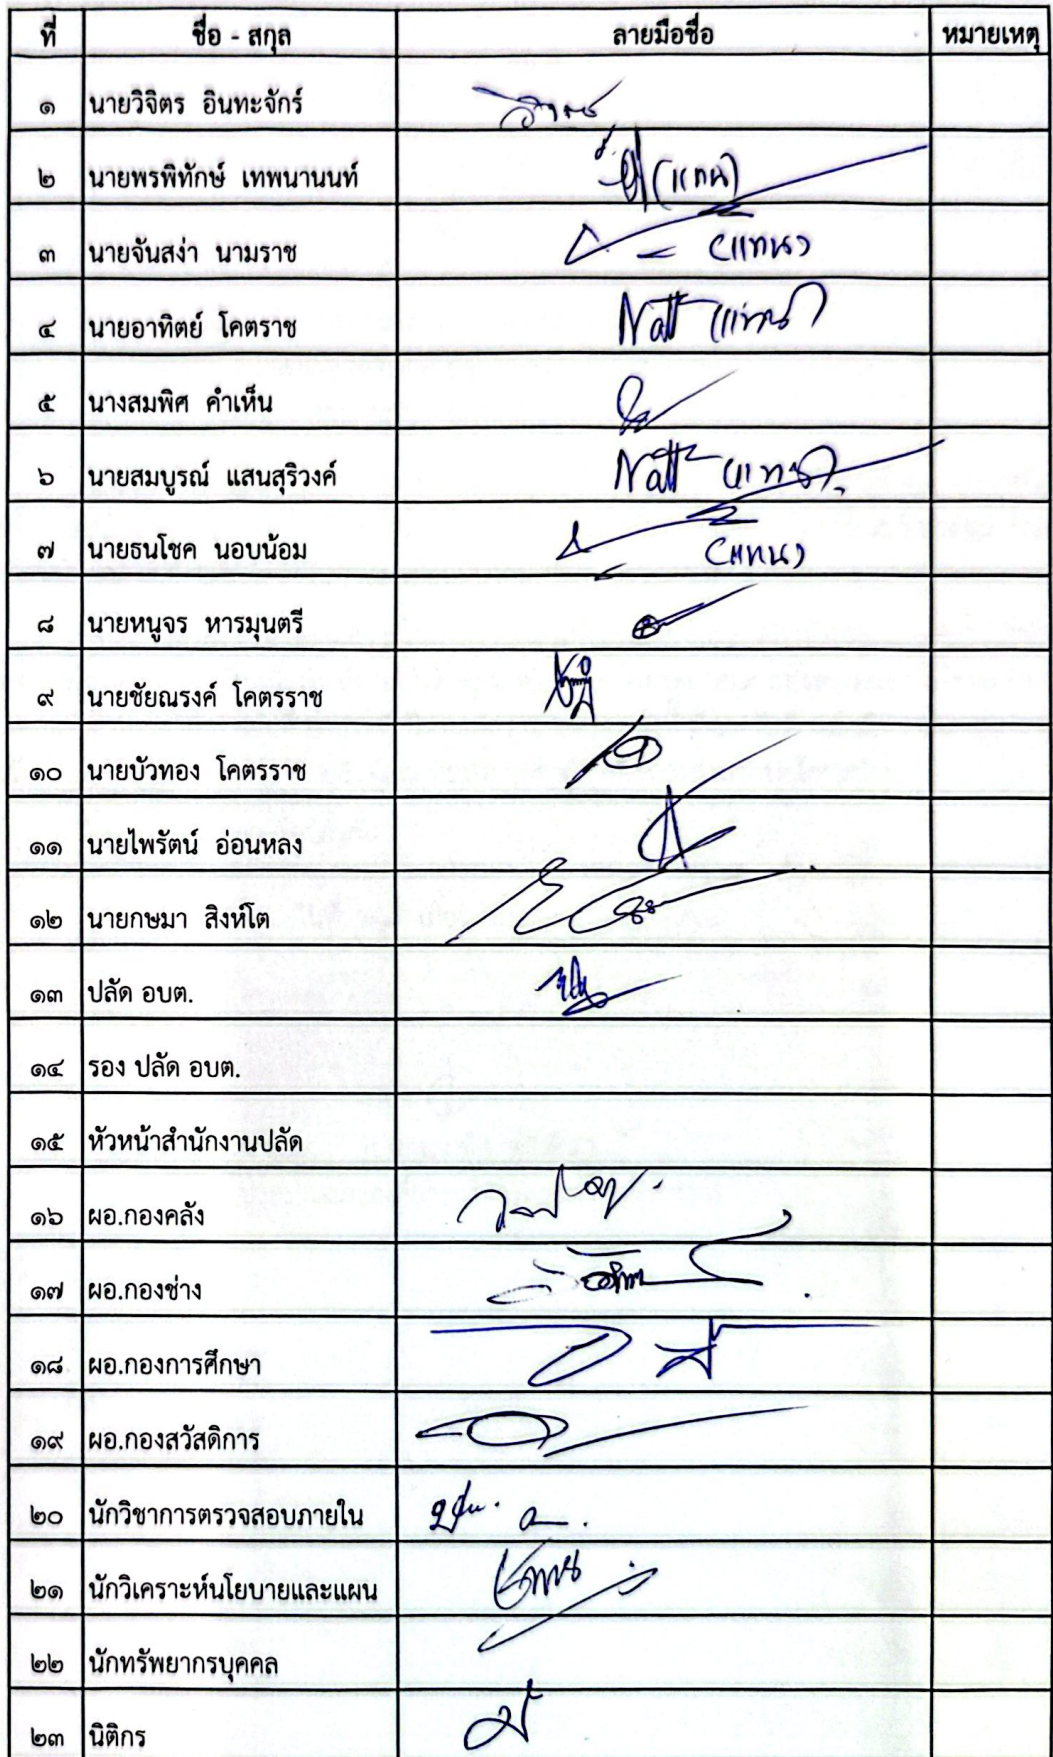 ที่ ชื่อ - สกุล ลายมือชื่อ หมายเหตุ
๑ นายวิจิตร อินทะจักร์
๒ นายพรพิทักษ์ เทพนานนท์ (แทน)
๓ นายจันสง่า นามราช (แทน)
๔ นายอาทิตย์ โคตราช Natt (แทน)
๕ นางสมพิศ คำเห็น
๖ นายสมบูรณ์ แสนสุริวงค์ Natt (แทน)
๗ นายธนโชค นอบน้อม (แทน)
๘ นายหนูจร หารมุนตรี
๙ นายชัยณรงค์ โคตรราช
๑๐ นายบัวทอง โคตรราช
๑๑ นายไพรัตน์ อ่อนหลง
๑๒ นายกษมา สิงห์โต
๑๓ ปลัด อบต.
๑๔ รอง ปลัด อบต.
๑๕ หัวหน้าสำนักงานปลัด
๑๖ ผอ.กองคลัง
๑๗ ผอ.กองช่าง
๑๘ ผอ.กองการศึกษา
๑๙ ผอ.กองสวัสดิการ
๒๐ นักวิชาการตรวจสอบภายใน
๒๑ นักวิเคราะห์นโยบายและแผน
๒๒ นักทรัพยากรบุคคล
๒๓ นิติกร